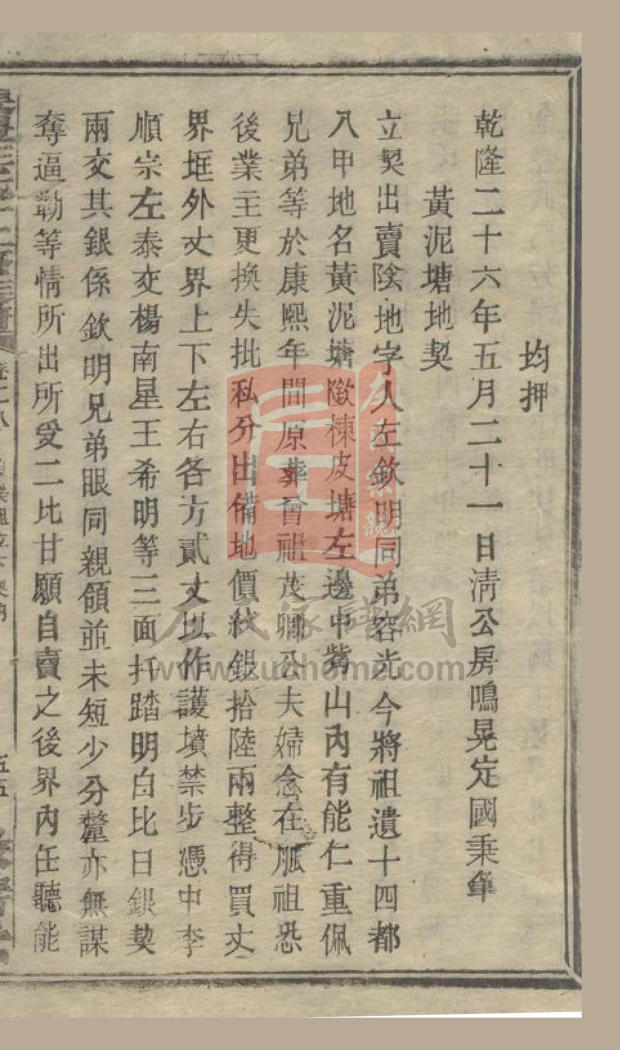 均押
乾隆二十六年五月二十一日淸公房鳴晃定國秉筆
黃泥塘地契
立契出賣陰地字人左欽明同弟容光今將祖遺十四都
八甲地名黃泥塘㘭棟皮塘左邊中嘴山內有能仁重佩
兄弟等於康熙年間原葬曾祖茂卿公夫婦念在脈祖恐
後業主更換失批私分出備地價紋銀拾陸兩整得買丈
界埂外丈界上下左右各方貳丈以作護墳禁步憑中李
順宗左泰交楊南星王希明等三面扦踏明白比日銀契
兩交其銀係欽明兄弟眼同親領並未短少分釐亦無謀
奪逼勒等情所出所受二比甘願自賣之後界內任聽能
五五
左氏家譜網
www.zuohome.com